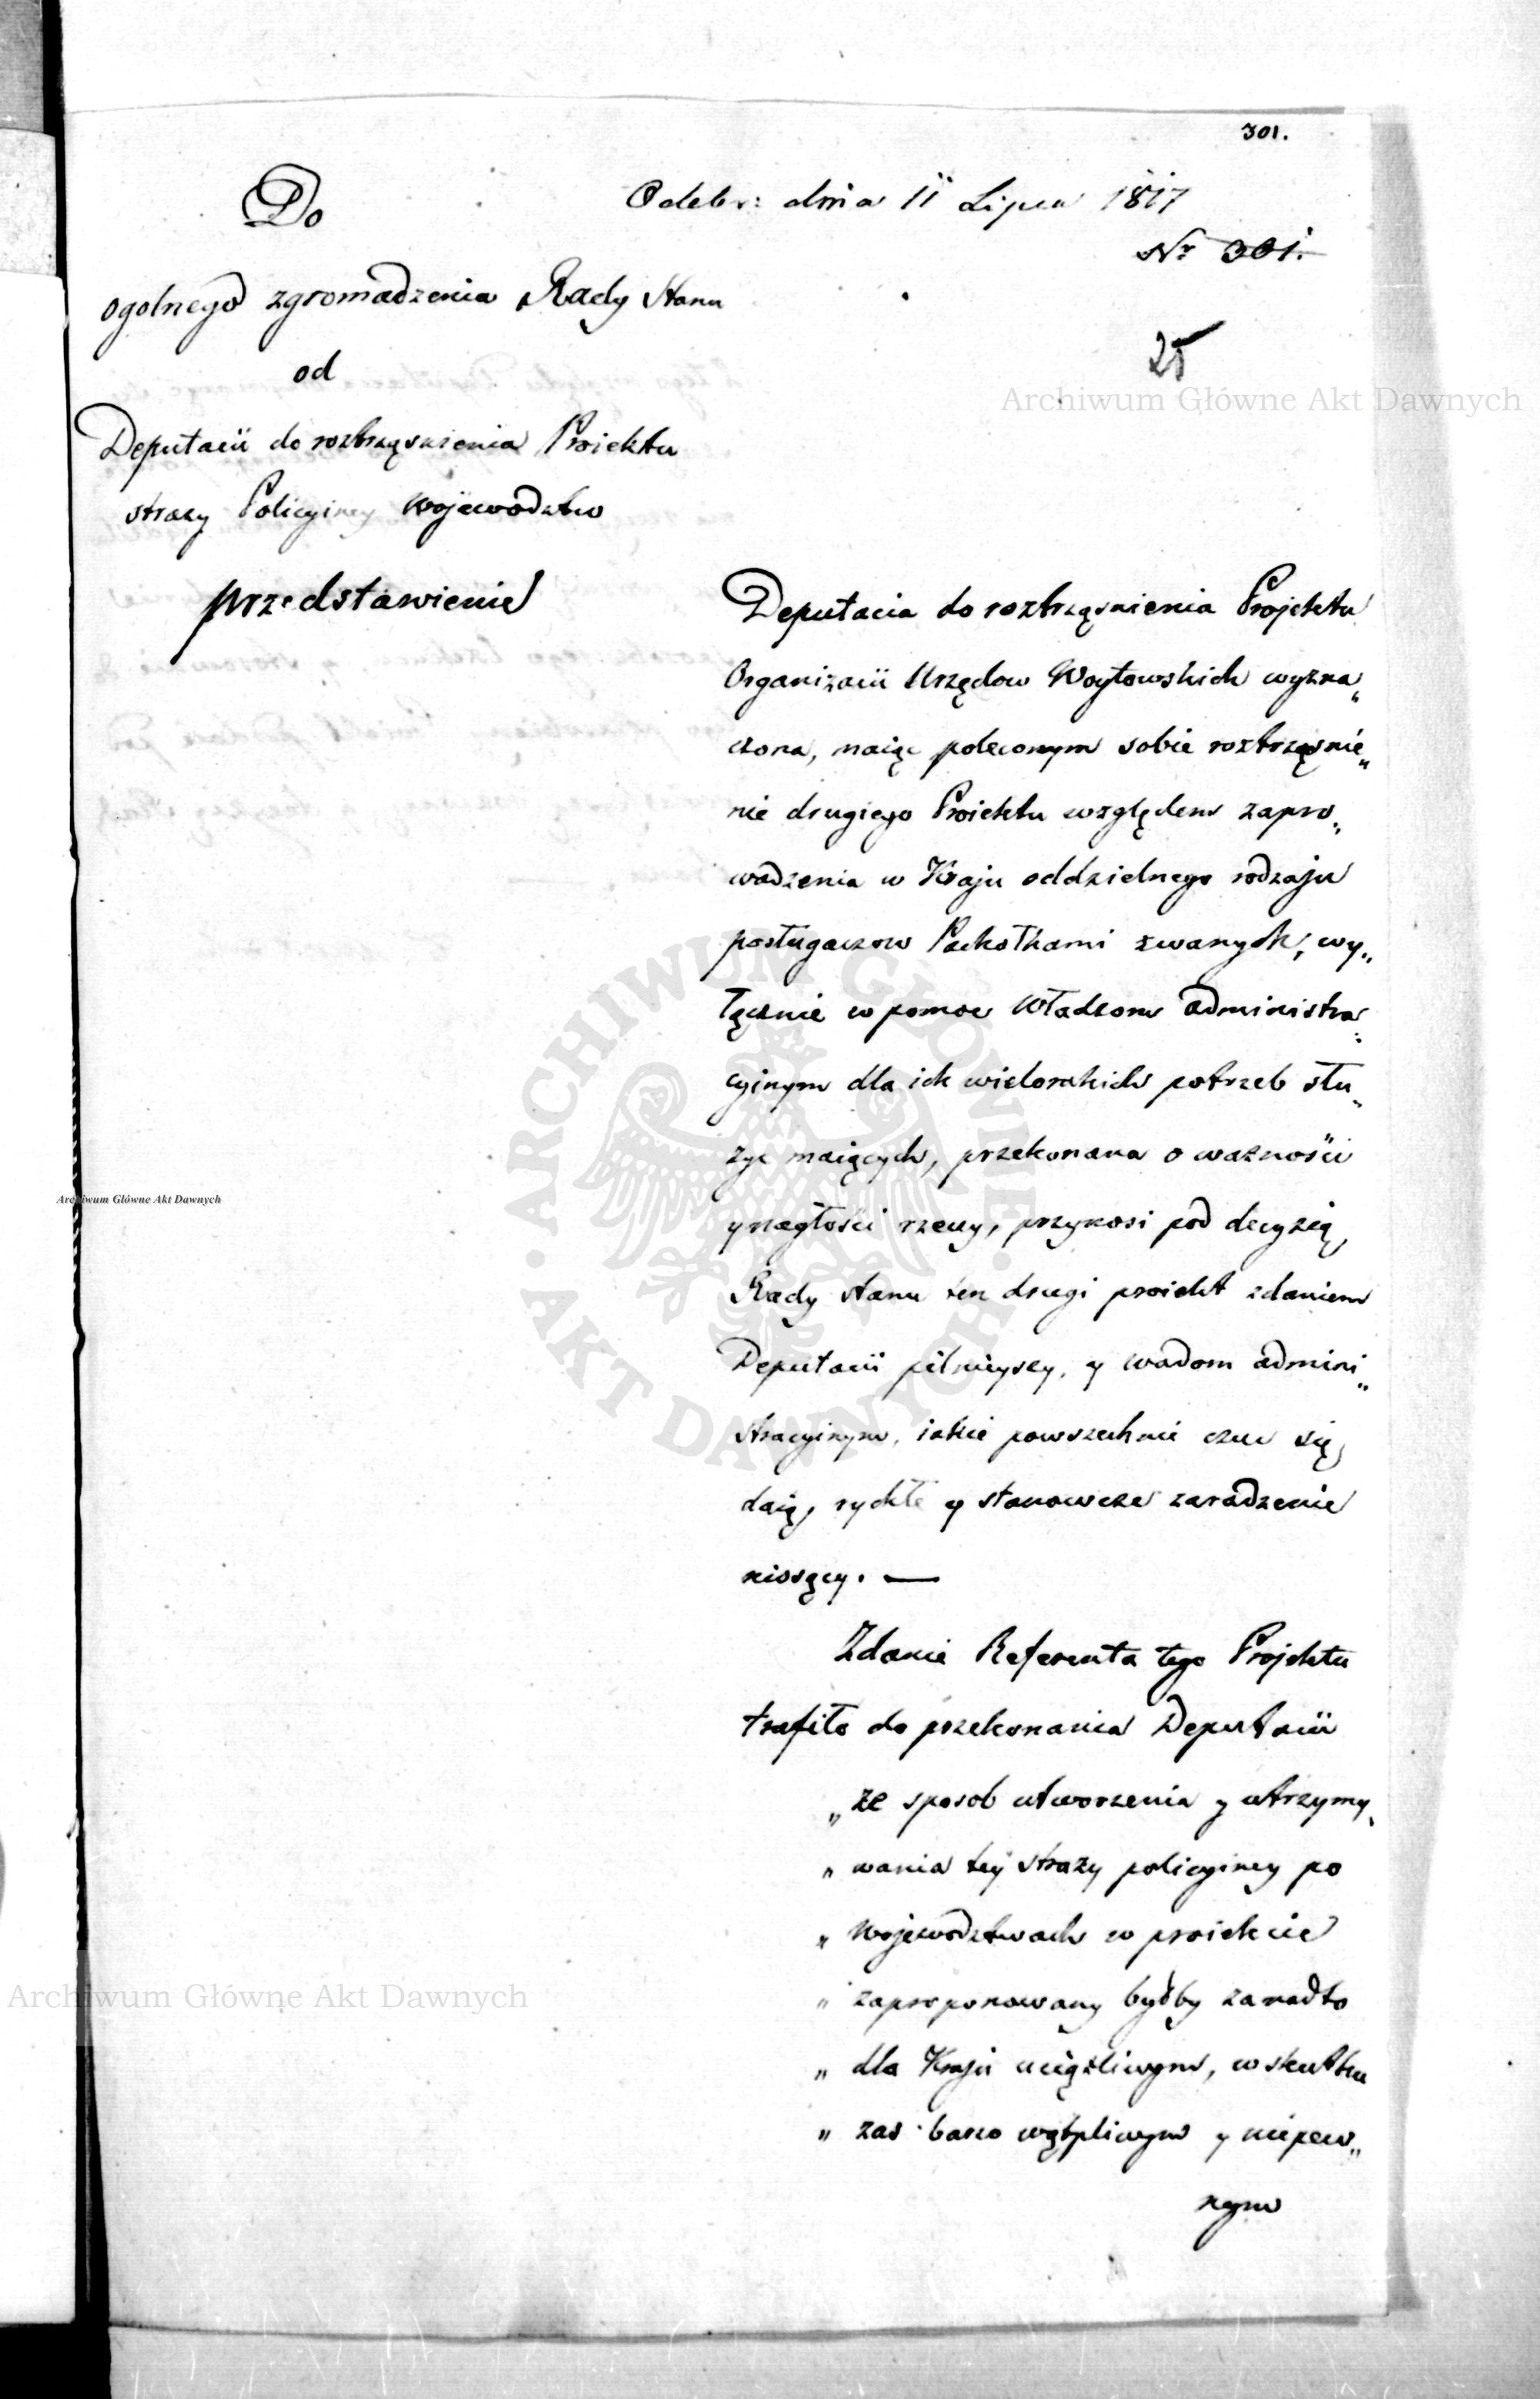 301.
Odebr: dnia 11 Lipca 1817
Nr 301.
25
Do
ogolnego zgromadzenia Rady Stanu
od
Deputacii do roztrząsnienia Proiektu
strazy Policyiney Wojewodztw
przedstawienie
Deputacia do roztrząsnienia Projektu
Organizacii Urzędow Woytowskich wyzna„
czona, maiąc poleconym sobie roztrząsnie„
nie drugiego Proiektu względem zapro„
wadzenia w Kraju oddzielnego rodzaju
posługaczow Pachołkami zwanych, wy„
łącznie w pomoc Władzom administra:
cyinym dla ich wielorakich potrzeb słu„
zyc maiących, przekonana o waznosci
y nagłosci rzeczy, przynosi pod decyzią
Rady Stanu ten drugi proiekt zdaniem
Deputacii pilnieyszy, y wadom admini„
stracyinym, iakie powszechnie czuc się
daią, rychłe y stanowcze zaradzenie
niosący. —
Zdanie Referenta tego Projektu
trafiło do przekonania Deputacii
„ ze sposob utworzenia y utrzymy„
„ wania tey strazy policyiney po
„ Wojewodztwach w proiekcie
„ zaproponowany byłby zanadto
„ dla Kraju uciążliwym, w skutku
„ zas barzo wątpliwym y niepew„
nym
Archiwum Główne Akt Dawnych
Archiwum Główne Akt Dawnych
Archiwum Główne Akt Dawnych
ARCHIWUM GŁÓWNE • AKT DAWNYCH •